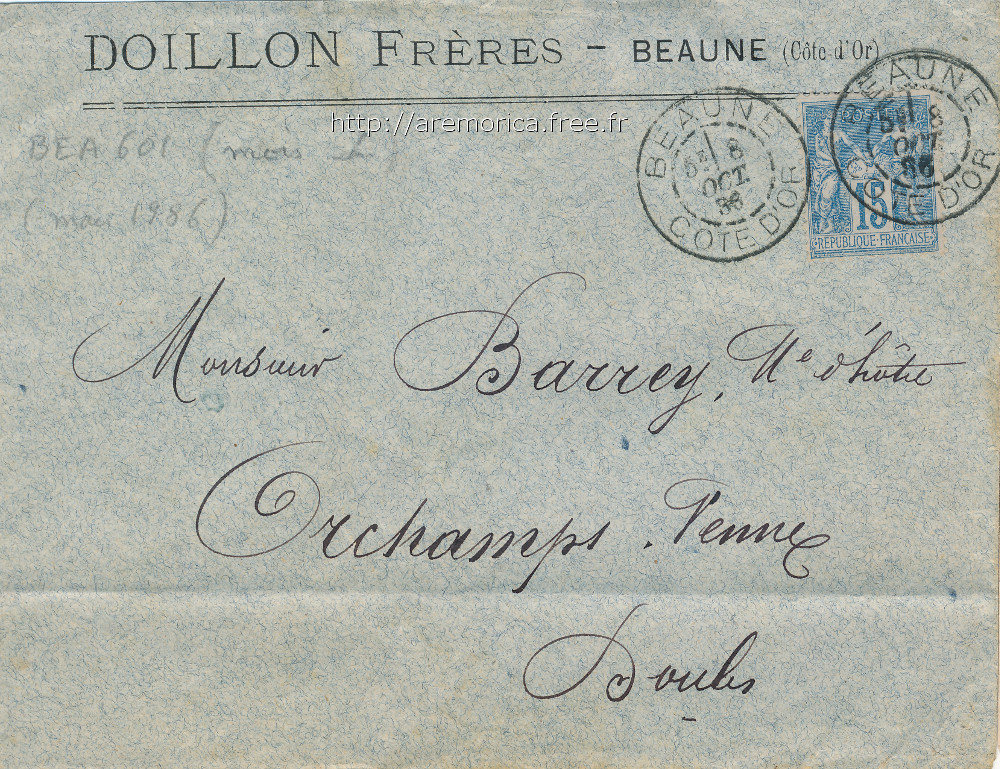 DOILLON FRÈRES - BEAUNE (Côte d'Or)
http://aremorica.free.fr
BEAUNE
5E 8
OCT.
86
COTE D'OR
BEAUNE
5E 8
OCT.
86
COTE D'OR
POSTES
15
REPUBLIQUE FRANÇAISE
BEA 601 (mois
(mai 1986)
Monsieur Barrey, Me d'hôtel
Orchamps Vennes
Doubs